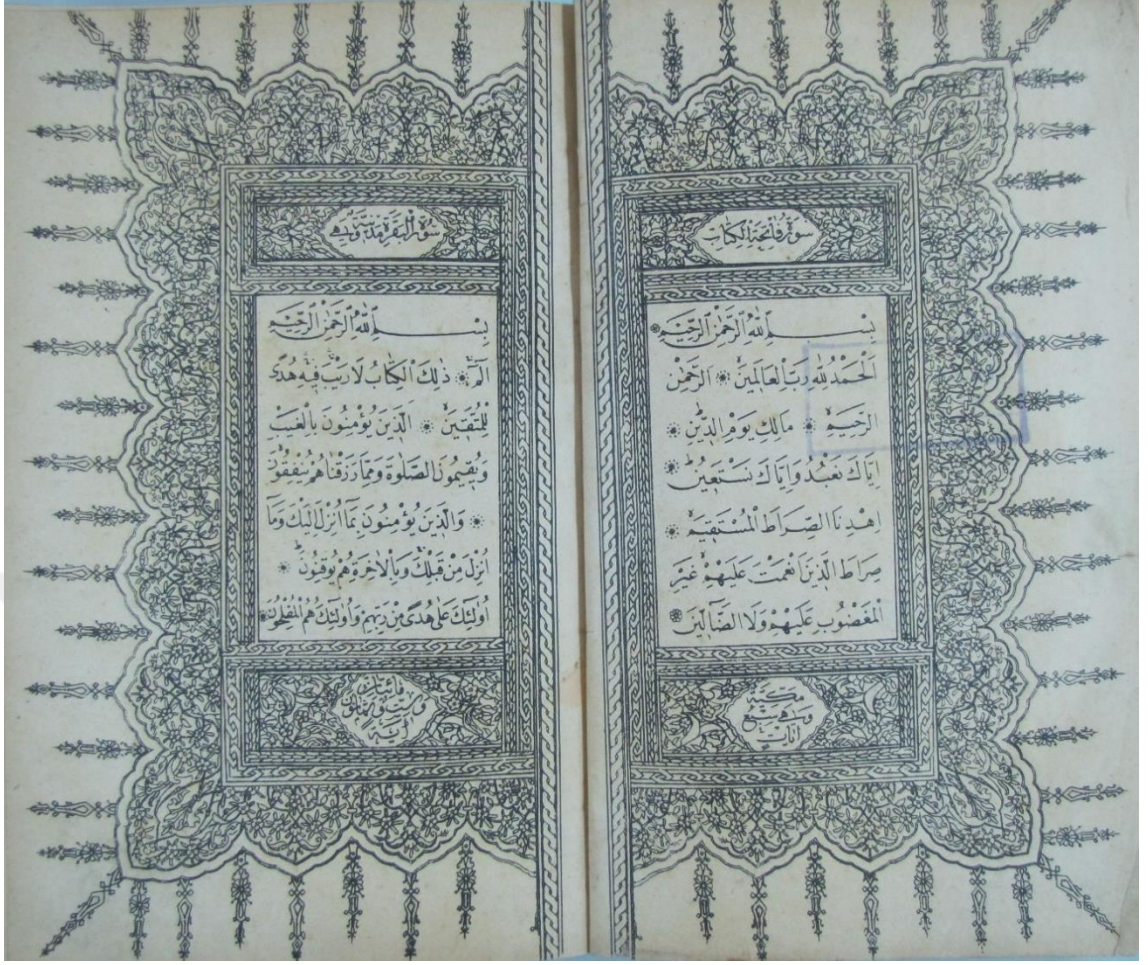 سورة فاتحة الكتاب
بِسْمِ ٱللّٰهِ ٱلرَّحْمٰنِ ٱلرَّحِيمِ
اَلْحَمْدُ لِلّٰهِ رَبِّ الْعَالَمِينَ ۞ اَلرَّحْمٰنِ
الرَّحِيمِ ۞ مَالِكِ يَوْمِ الدِّينِ ۞
اِيَّاكَ نَعْبُدُ وَاِيَّاكَ نَسْتَعِينُ ۞
اِهْدِنَا الصِّرَاطَ الْمُسْتَقِيمَ ۞
صِرَاطَ الَّذِينَ اَنْعَمْتَ عَلَيْهِمْ غَيْرِ
الْمَغْضُوبِ عَلَيْهِمْ وَلَا الضَّٓالِّينَ ۞
مكية
وهي سبع
آيات
سورة البقرة مدنية وهي
بِسْمِ ٱللّٰهِ ٱلرَّحْمٰنِ ٱلرَّحِيمِ
الٓمٓ ۞ ذٰلِكَ الْكِتَابُ لَا رَيْبَ فِيهِ هُدًى
لِلْمُتَّقِينَ ۞ اَلَّذِينَ يُؤْمِنُونَ بِالْغَيْبِ
وَيُقِيمُونَ الصَّلٰوةَ وَمِمَّا رَزَقْنَاهُمْ يُنْفِقُونَ
۞ وَالَّذِينَ يُؤْمِنُونَ بِمَٓا اُنْزِلَ اِلَيْكَ وَمَٓا
اُنْزِلَ مِنْ قَبْلِكَ وَبِالْاٰخِرَةِ هُمْ يُوقِنُونَ ۞
اُولٰٓئِكَ عَلٰى هُدًى مِنْ رَبِّهِمْ وَاُولٰٓئِكَ هُمُ الْمُفْلِحُونَ ۞
مائتان
وست وثمانون
آية